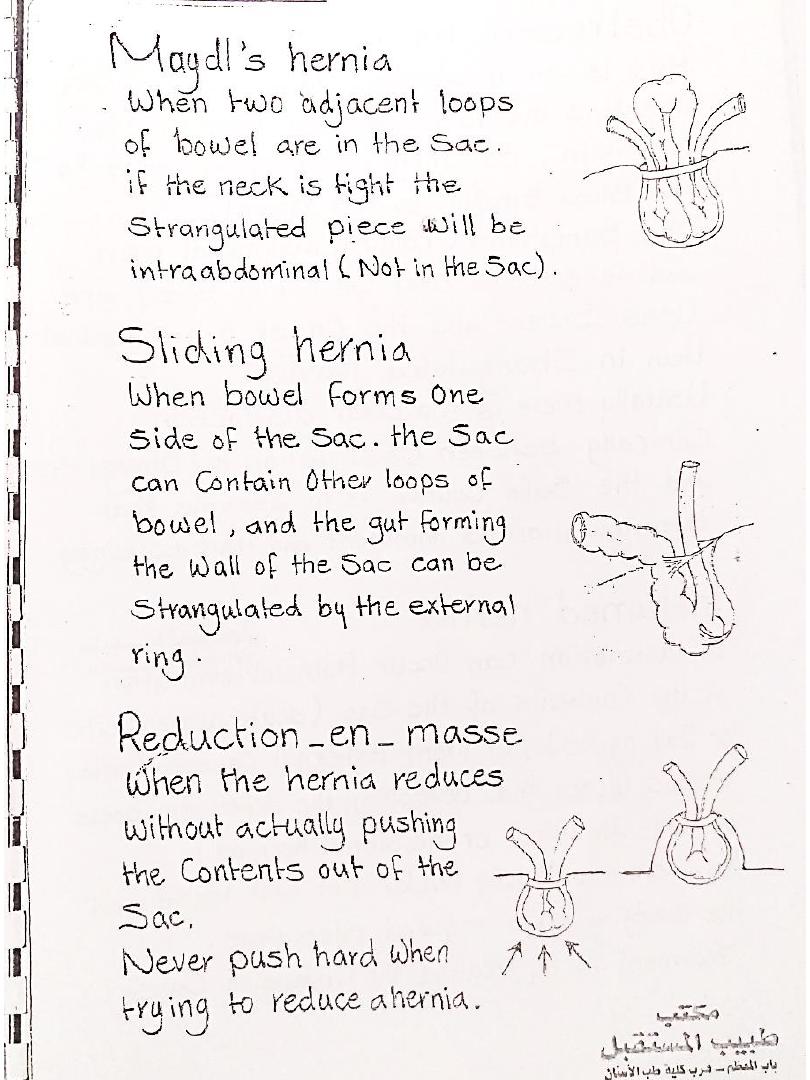 Maydl's hernia
When two adjacent loops
of bowel are in the Sac.
if the neck is tight the
Strangulated piece will be
intraabdominal (Not in the Sac).
Sliding hernia
When bowel forms One
Side of the Sac. the Sac
can Contain Other loops of
bowel, and the gut forming
the Wall of the Sac can be
Strangulated by the external
ring.
Reduction_en_masse
When the hernia reduces
without actually pushing
the Contents out of the
Sac.
Never push hard when
trying to reduce a hernia.
مكتب
طبيب المستقبل
باب المعظم - قرب كلية طب الأسنان